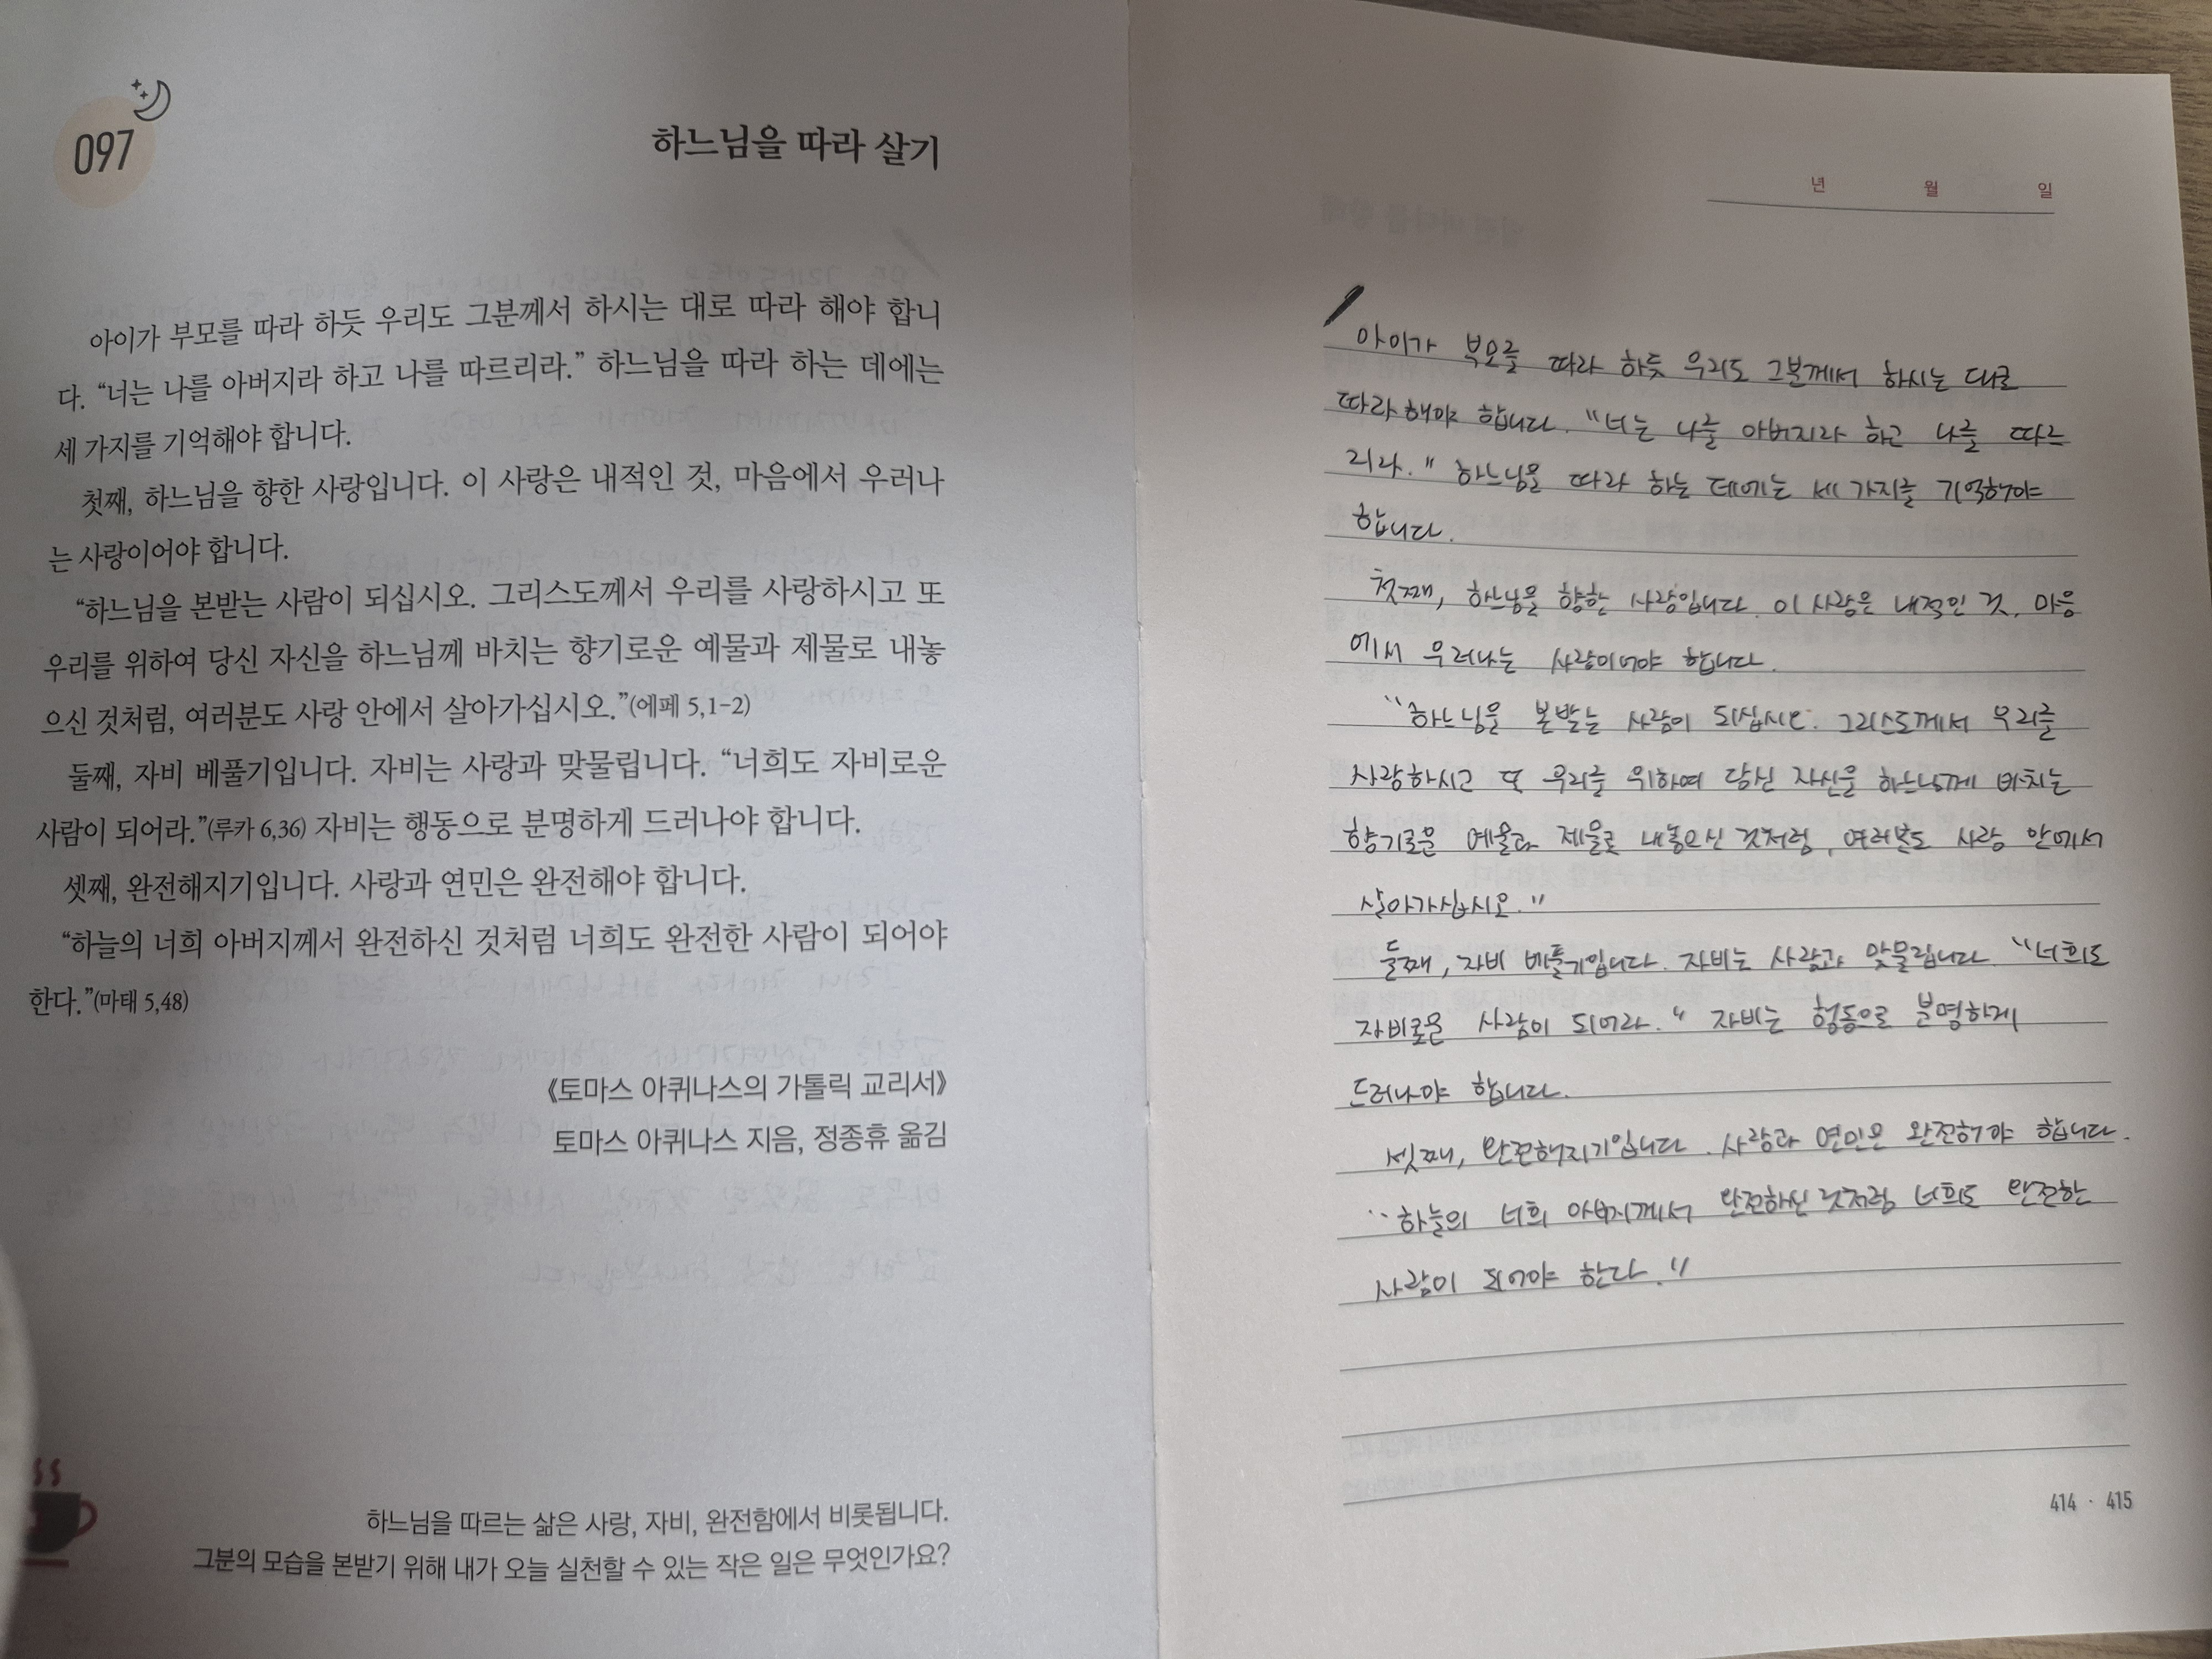 097
하느님을 따라 살기
아이가 부모를 따라 하듯 우리도 그분께서 하시는 대로 따라 해야 합니
다. “너는 나를 아버지라 하고 나를 따르리라.” 하느님을 따라 하는 데에는
세 가지를 기억해야 합니다.
첫째, 하느님을 향한 사랑입니다. 이 사랑은 내적인 것, 마음에서 우러나
는 사랑이어야 합니다.
“하느님을 본받는 사람이 되십시오. 그리스도께서 우리를 사랑하시고 또
우리를 위하여 당신 자신을 하느님께 바치는 향기로운 예물과 제물로 내놓
으신 것처럼, 여러분도 사랑 안에서 살아가십시오.”(에페 5,1-2)
둘째, 자비 베풀기입니다. 자비는 사랑과 맞물립니다. “너희도 자비로운
사람이 되어라.”(루카 6,36) 자비는 행동으로 분명하게 드러나야 합니다.
셋째, 완전해지기입니다. 사랑과 연민은 완전해야 합니다.
“하늘의 너희 아버지께서 완전하신 것처럼 너희도 완전한 사람이 되어야
한다.”(마태 5,48)
《토마스 아퀴나스의 가톨릭 교리서》
토마스 아퀴나스 지음, 정종휴 옮김
하느님을 따르는 삶은 사랑, 자비, 완전함에서 비롯됩니다.
그분의 모습을 본받기 위해 내가 오늘 실천할 수 있는 작은 일은 무엇인가요?
년 월 일
아이가 부모를 따라 하듯 우리도 그분께서 하시는 대로
따라 해야 합니다. "너는 나를 아버지라 하고 나를 따르
리라." 하느님을 따라 하는 데에는 세 가지를 기억해야
합니다.
첫째, 하느님을 향한 사랑입니다. 이 사랑은 내적인 것, 마음
에서 우러나는 사랑이어야 합니다.
"하느님을 본받는 사람이 되십시오. 그리스도께서 우리를
사랑하시고 또 우리를 위하여 당신 자신을 하느님께 바치는
향기로운 예물과 제물로 내놓으신 것처럼, 여러분도 사랑 안에서
살아가십시오."
둘째, 자비 베풀기입니다. 자비는 사랑과 맞물립니다. "너희도
자비로운 사람이 되어라." 자비는 행동으로 분명하게
드러나야 합니다.
셋째, 완전해지기입니다. 사랑과 연민은 완전해야 합니다.
"하늘의 너희 아버지께서 완전하신 것처럼 너희도 완전한
사람이 되어야 한다."
414 · 415